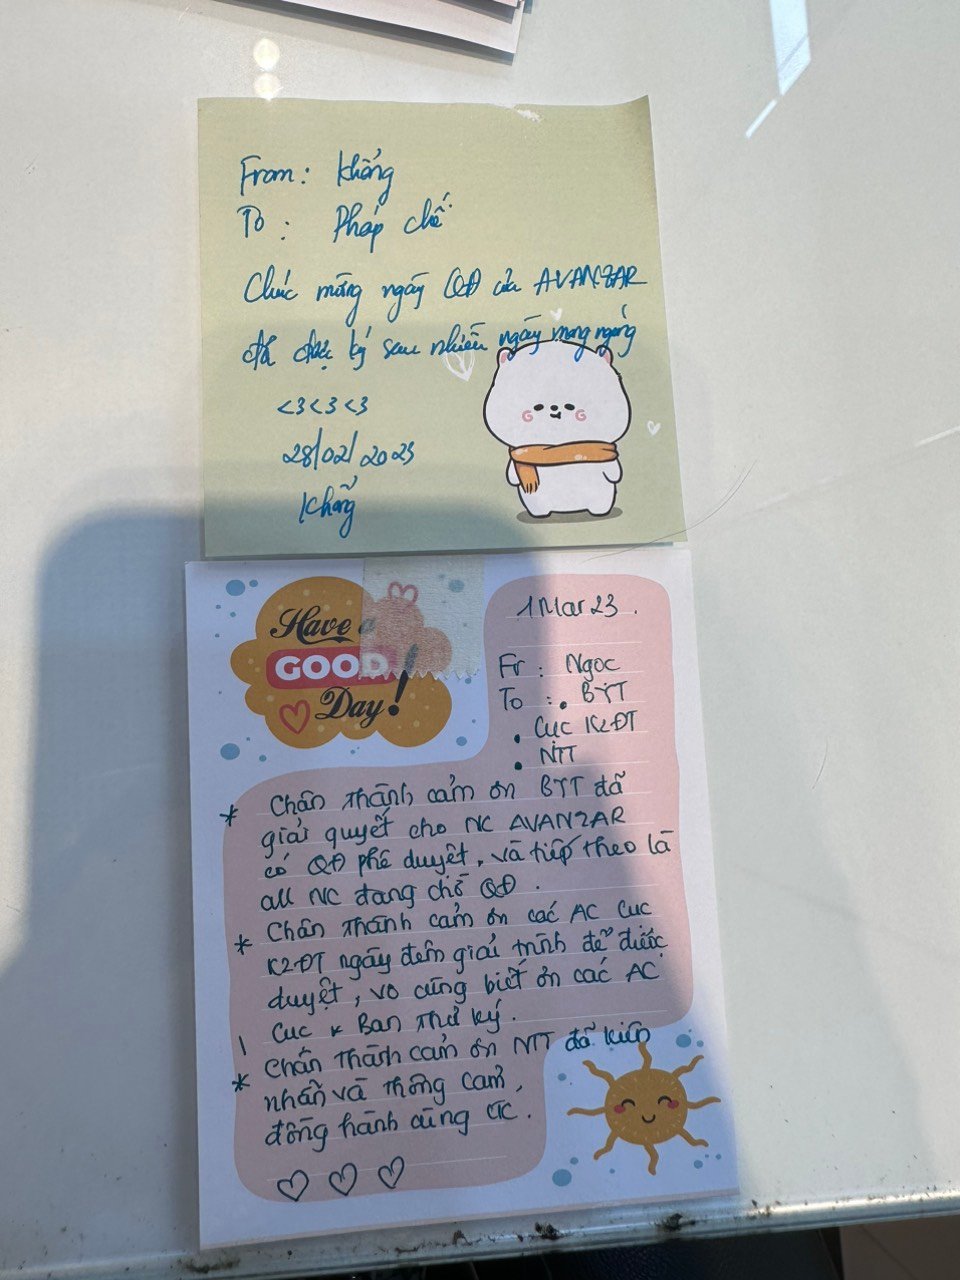 From: Khổng
To: Pháp chế
Chúc mừng ngày QĐ của AVANZAR
đã được ký sau nhiều ngày mong ngóng
<3 <3 <3
28/02/2023
Have a
GOOD
Day!
1 Mar 23.
Fr: Ngọc
To: • BYT
• Cục K2ĐT
• NTT
* Chân thành cảm ơn BYT đã
giải quyết cho NC AVANZAR
có QĐ phê duyệt, và tiếp theo là
all NC đang chờ QĐ.
* Chân thành cảm ơn các AC Cục
K2ĐT ngày đêm giải trình để được
duyệt, vô cùng biết ơn các AC
Cục & Ban thư ký.
* Chân thành cảm ơn NTT đã kiên
nhẫn và thông cảm,
đồng hành cùng CTC.